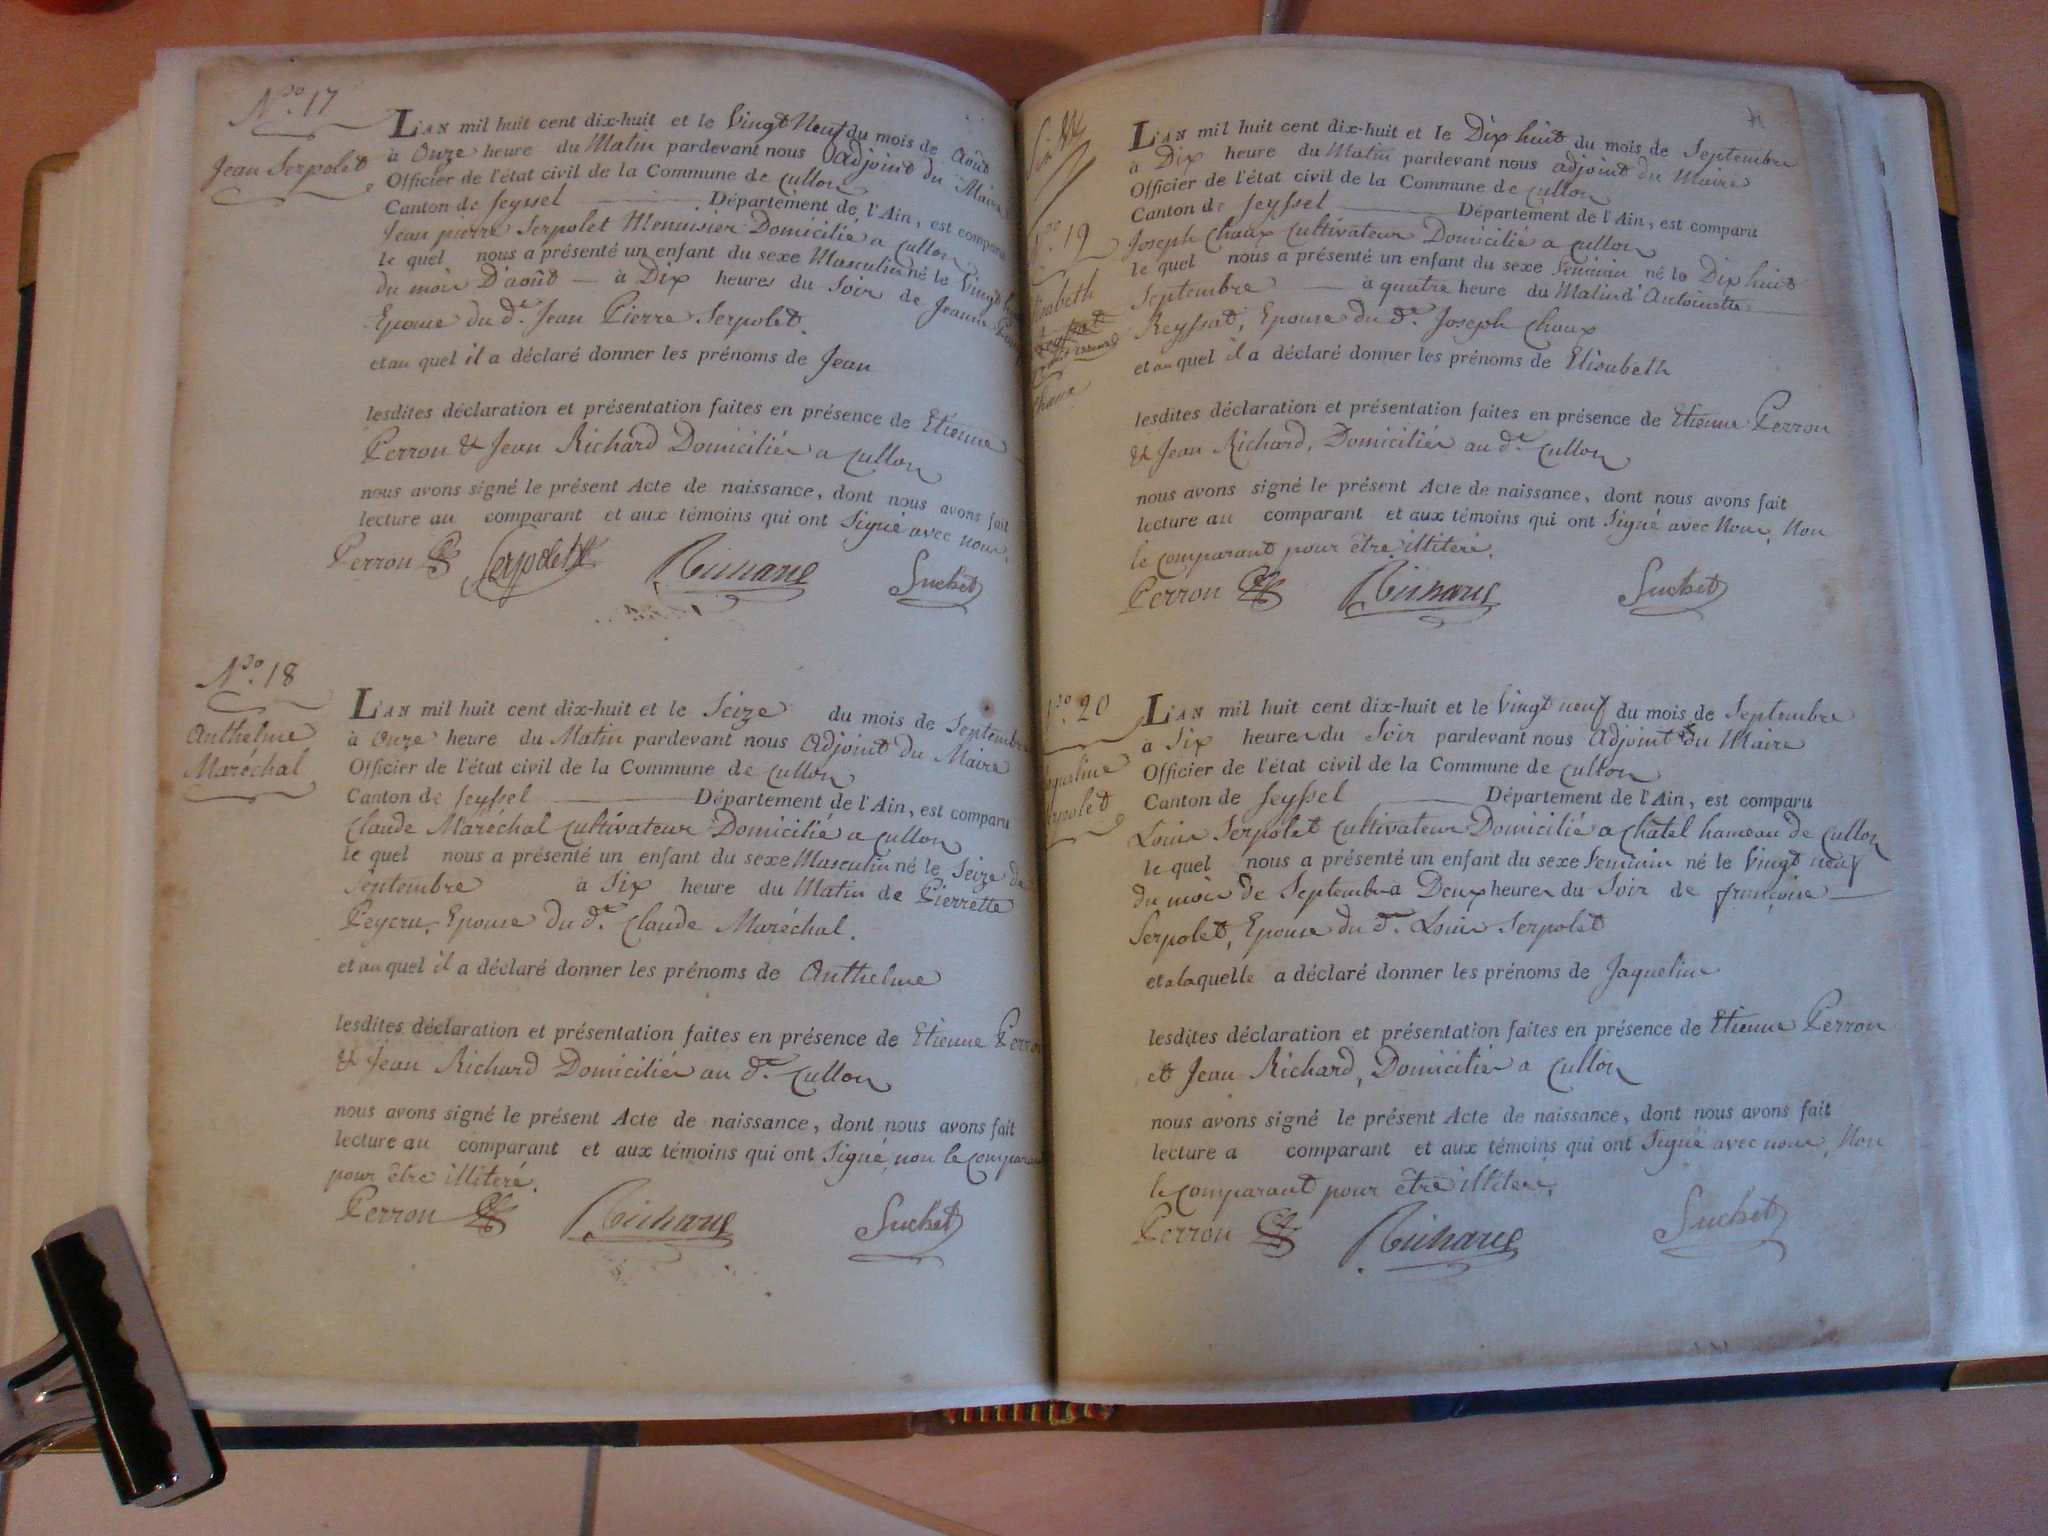 N.° 17
Jean Serpolet
L'AN mil huit cent dix-huit et le Vingt Neuf du mois de Août
à Onze heure du Matin pardevant nous Adjoint du Maire
Officier de l'état civil de la Commune de Cullon
Canton de Seyssel Département de l'Ain, est comparu
Jean pierre Serpolet Menuisier Domicilié a Cullon
le quel nous a présenté un enfant du sexe Masculin né le Vingt
du mois D'août à Dix heures du Soir de Jeanne
Epouse du dt. Jean Pierre Serpolet.
et au quel il a déclaré donner les prénoms de Jean
lesdites déclaration et présentation faites en présence de Etienne
Perron & Jean Richard Domiciliés a Cullon
nous avons signé le présent Acte de naissance, dont nous avons fait
lecture au comparant et aux témoins qui ont Signé avec nous.
Perron Serpolet Richard Suchet
N.° 18
Anthelme
Maréchal
L'AN mil huit cent dix-huit et le Seize du mois de Septembre
à Onze heure du Matin pardevant nous Adjoint du Maire
Officier de l'état civil de la Commune de Cullon
Canton de Seyssel Département de l'Ain, est comparu
Claude Maréchal Cultivateur Domicilié a Cullon
le quel nous a présenté un enfant du sexe Masculin né le Seize de
Septembre à Six heure du Matin de Pierrette
Peycru, Epouse du dt. Claude Maréchal.
et au quel il a déclaré donner les prénoms de Anthelme
lesdites déclaration et présentation faites en présence de Etienne Perron
& Jean Richard Domiciliés au dt. Cullon
nous avons signé le présent Acte de naissance, dont nous avons fait
lecture au comparant et aux témoins qui ont Signé, non le comparant
pour être illiteré.
Perron Richard Suchet
19
Chaux
L'AN mil huit cent dix-huit et le Dix huit du mois de Septembre
à Dix heure du Matin pardevant nous adjoint du Maire
Officier de l'état civil de la Commune de Cullon
Canton de Seyssel Département de l'Ain, est comparu
Joseph Chaux Cultivateur Domicilié a Cullon
le quel nous a présenté un enfant du sexe feminin né le Dix huit
Septembre à quatre heure du Matin d'Antoinette
Reyssat, Epouse du dt. Joseph Chaux
et au quel il a déclaré donner les prénoms de Elisabeth
lesdites déclaration et présentation faites en présence de Etienne Perron
& Jean Richard, Domiciliés au dt. Cullon
nous avons signé le présent Acte de naissance, dont nous avons fait
lecture au comparant et aux témoins qui ont Signé avec Nous, Non
le comparant pour être illiteré.
Perron Richard Suchet
20
L'AN mil huit cent dix-huit et le Vingt neuf du mois de Septembre
à Six heures du Soir pardevant nous Adjoint du Maire
Officier de l'état civil de la Commune de Cullon
Canton de Seyssel Département de l'Ain, est comparu
Louis Serpolet Cultivateur Domicilié a Châtel hameau de Cullon
le quel nous a présenté un enfant du sexe feminin né le Vingt neuf
du mois de Septembre a Deux heures du Soir de françoise
Serpolet, Epouse du dt. Louis Serpolet
et a laquelle a déclaré donner les prénoms de Jaqueline
lesdites déclaration et présentation faites en présence de Etienne Perron
et Jean Richard, Domiciliés a Cullon
nous avons signé le présent Acte de naissance, dont nous avons fait
lecture a comparant et aux témoins qui ont Signé avec nous, Non
le comparant pour être illiteré.
Perron Richard Suchet